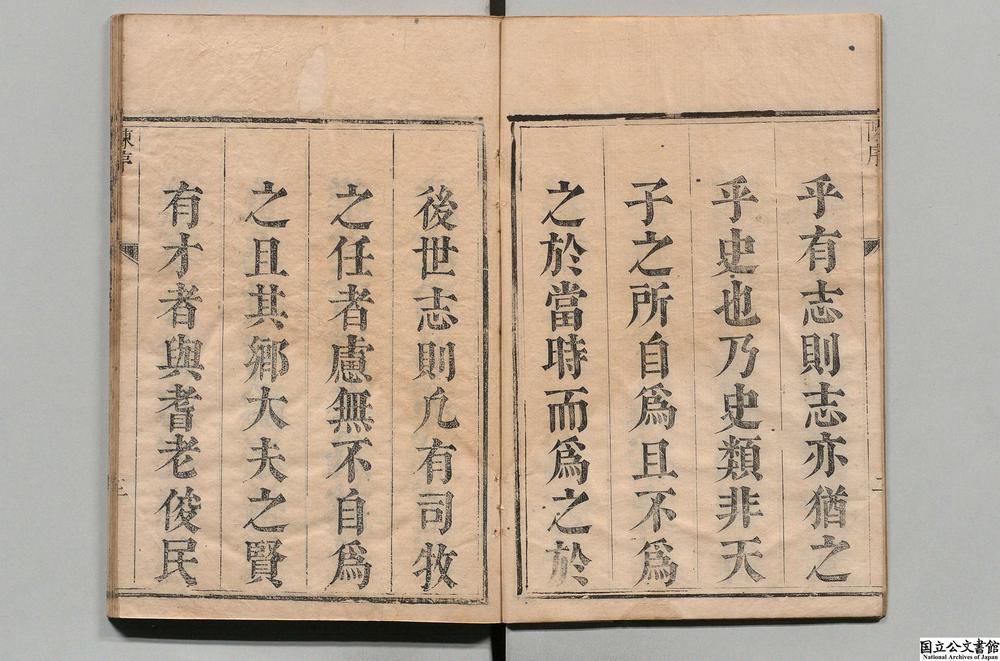 乎有志則志亦猶之
乎史也乃史類非天
子之所自爲且不爲
之於當時而爲之於
後世志則凡有司牧
之任者慮無不自爲
之且其鄉大夫之賢
有才者與耆老俊民
陳序
国立公文書館
National Archives of Japan